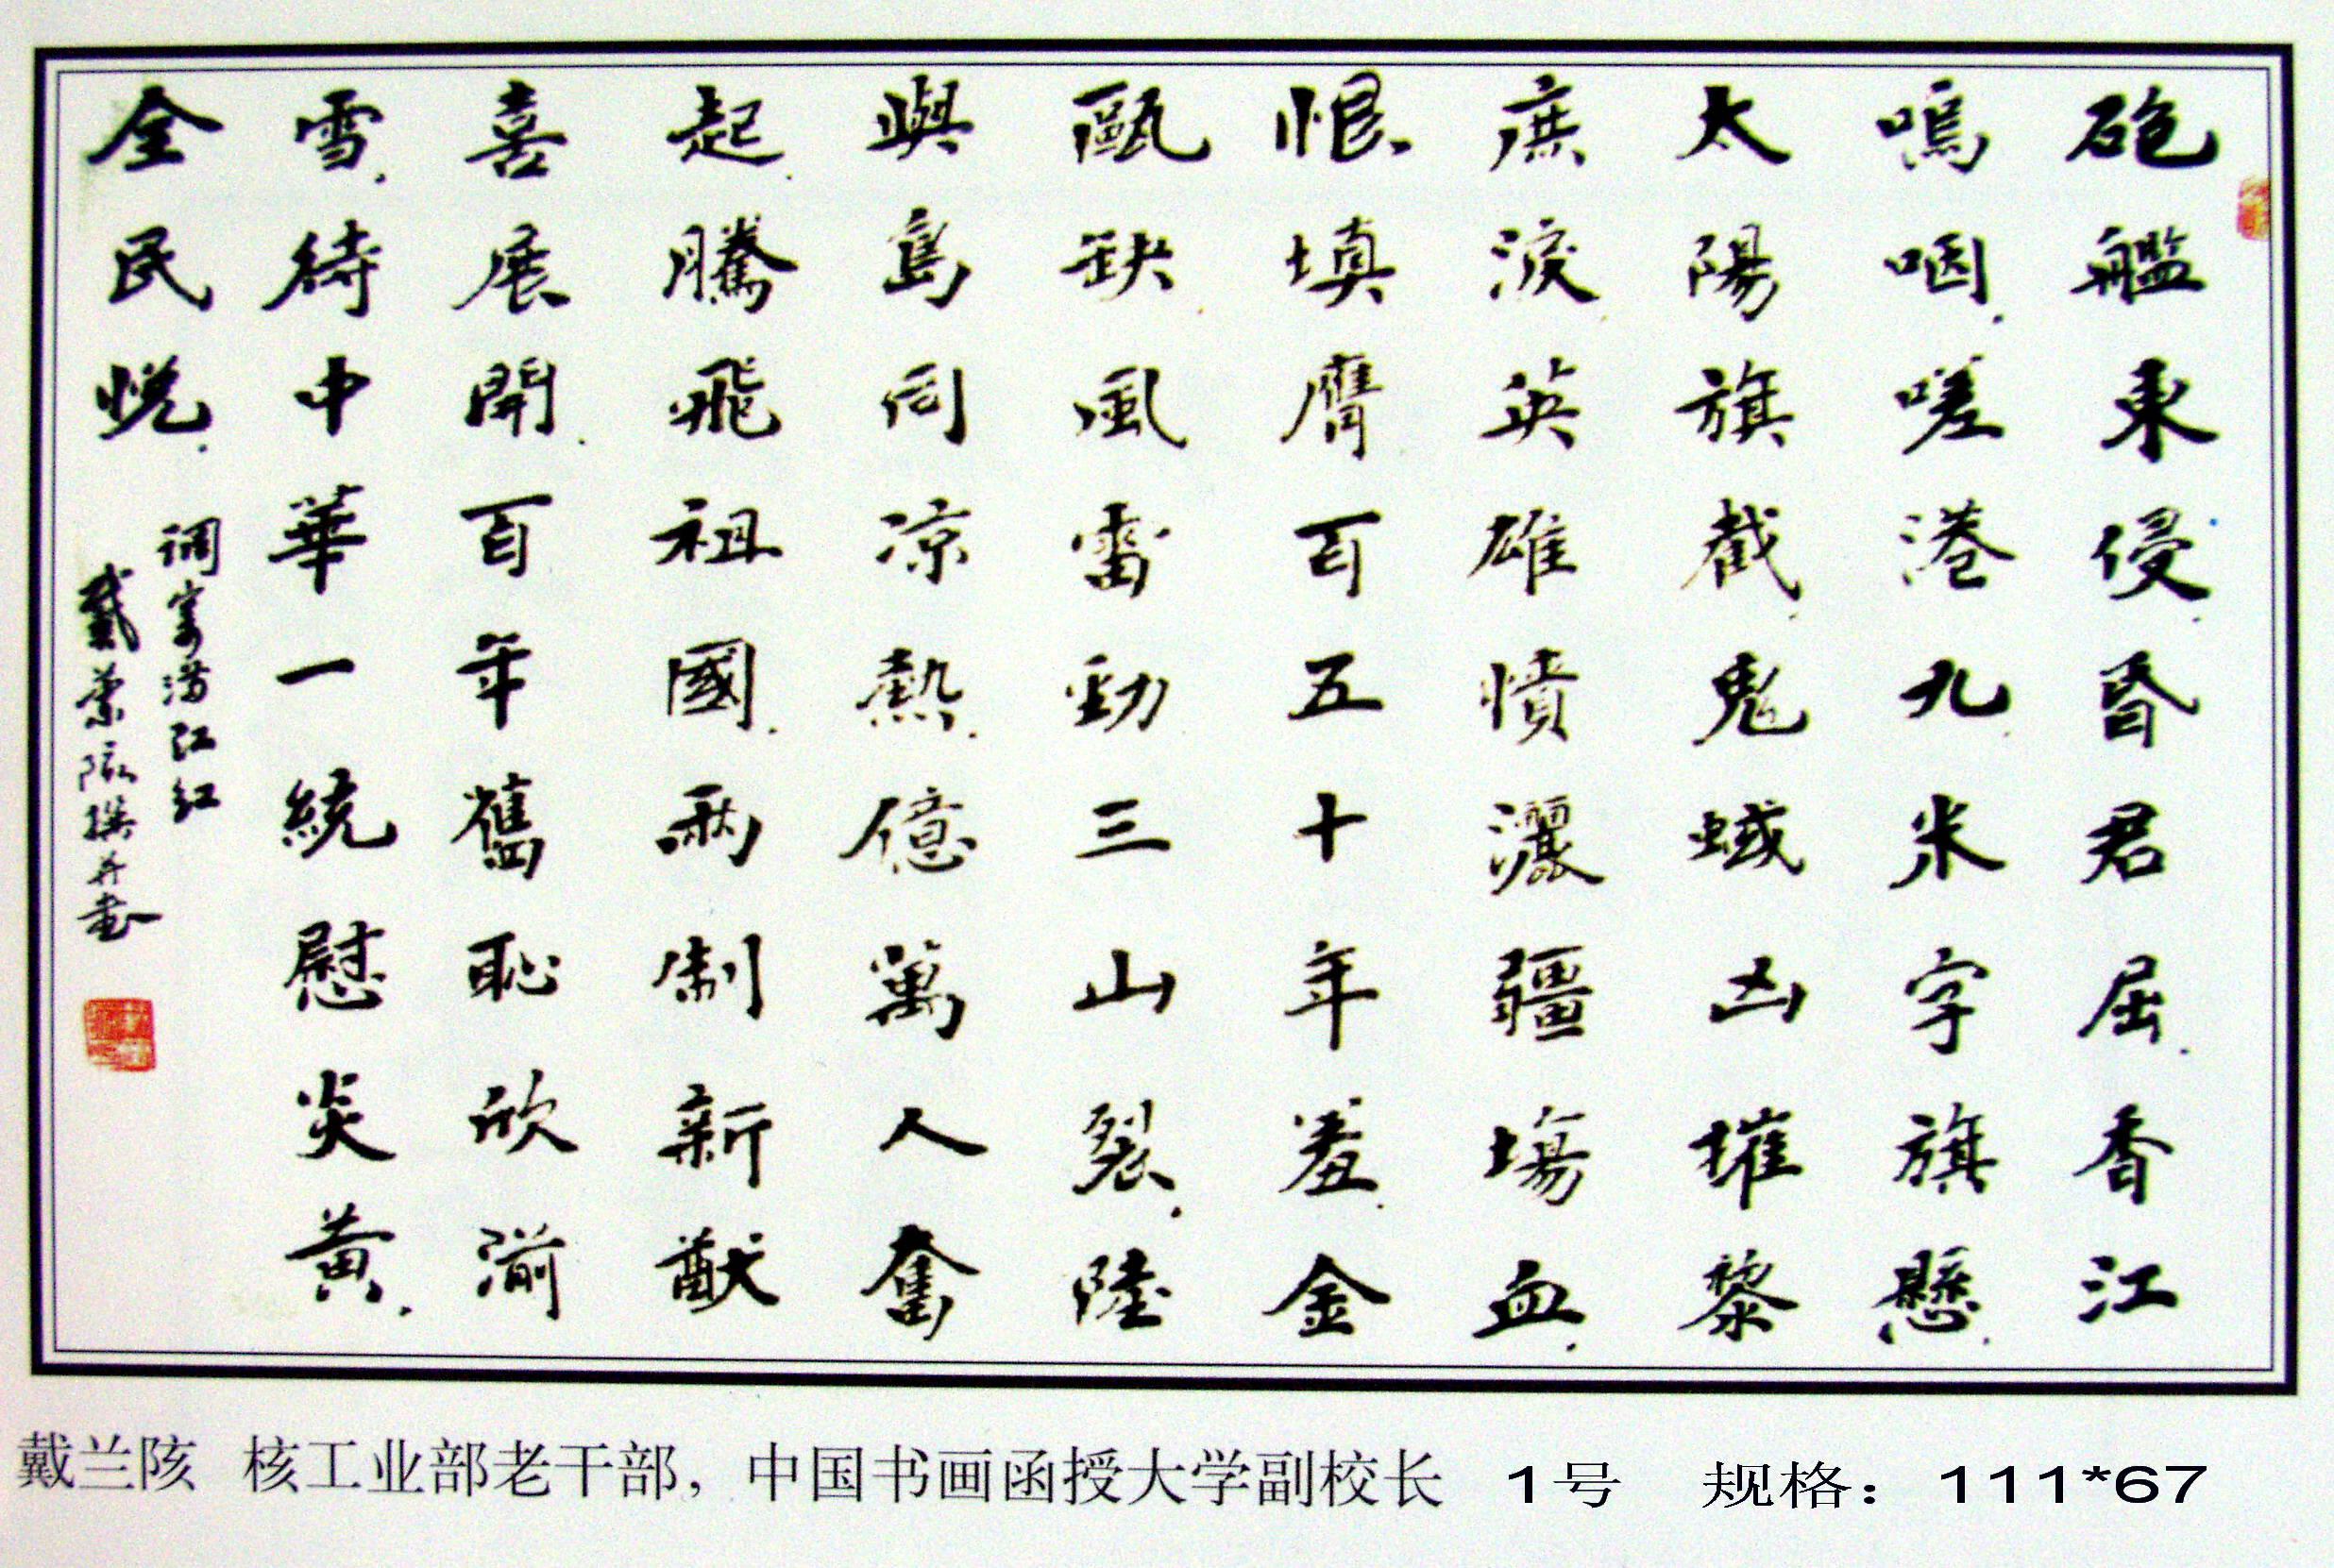 砲艦東侵.昏君屈.香江
嗚咽.嗟港九.米字旗懸.
太陽旗截.鬼蜮凶摧黎
庶淚.英雄憤灑疆場血.
恨.填膺.百五十年羞.金
甌缺.風雷勁.三山裂.陸
與島.同涼熱.億萬人奮
起.騰飛祖國.兩制新猷
喜展開.百年舊恥欣湔
雪.待中華一統慰炎黃.
全民悅.
调寄满江红
戴蘭陔撰并书
戴兰陔 核工业部老干部，中国书画函授大学副校长 1号 规格：111*67